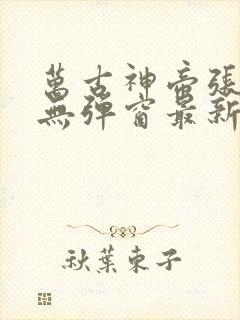 萬古神帝張
無彈窗最新
秋葉東子